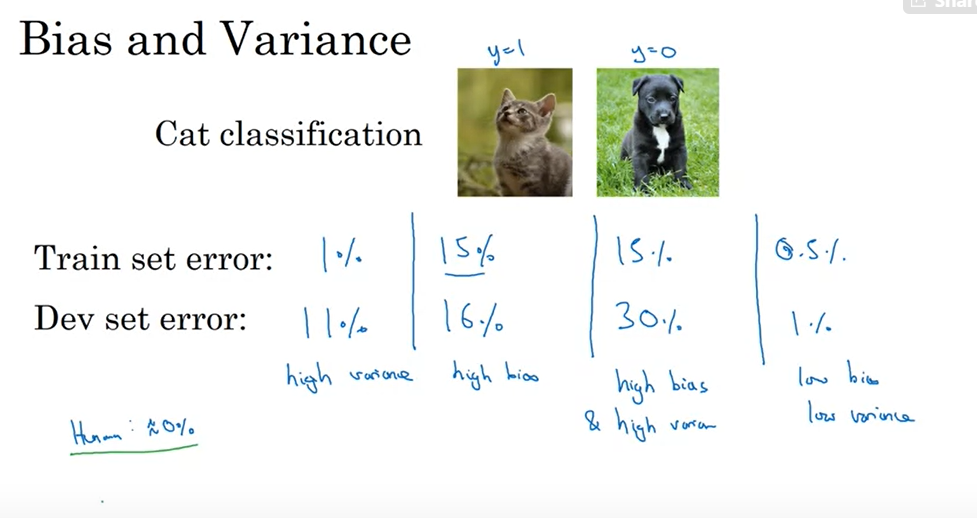 Share
Bias and Variance
y=1 y=0
Cat classification
Train set error: 1% 15% 15% 0.5%
Dev set error: 11% 16% 30% 1%
high variance high bias high bias low bias
& high varian low variance
Human: ≈0%